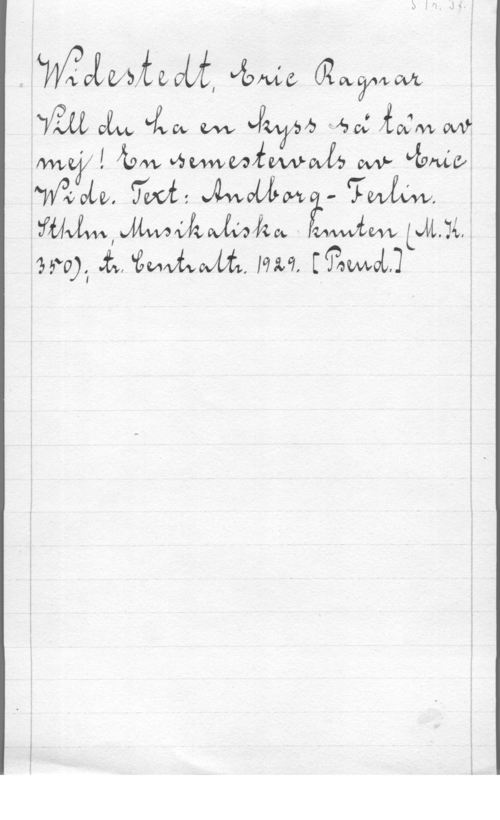 Widestedt, Eric Ragnar
Vill du ha en kyss så ta'n av
mej! En semestervals av Eric
Wide. Text: Andborg-Ferlin.
Sthlm, Musikaliska knuten (M.K.
350); tr. Centraltr. 1929. [Pseud.]